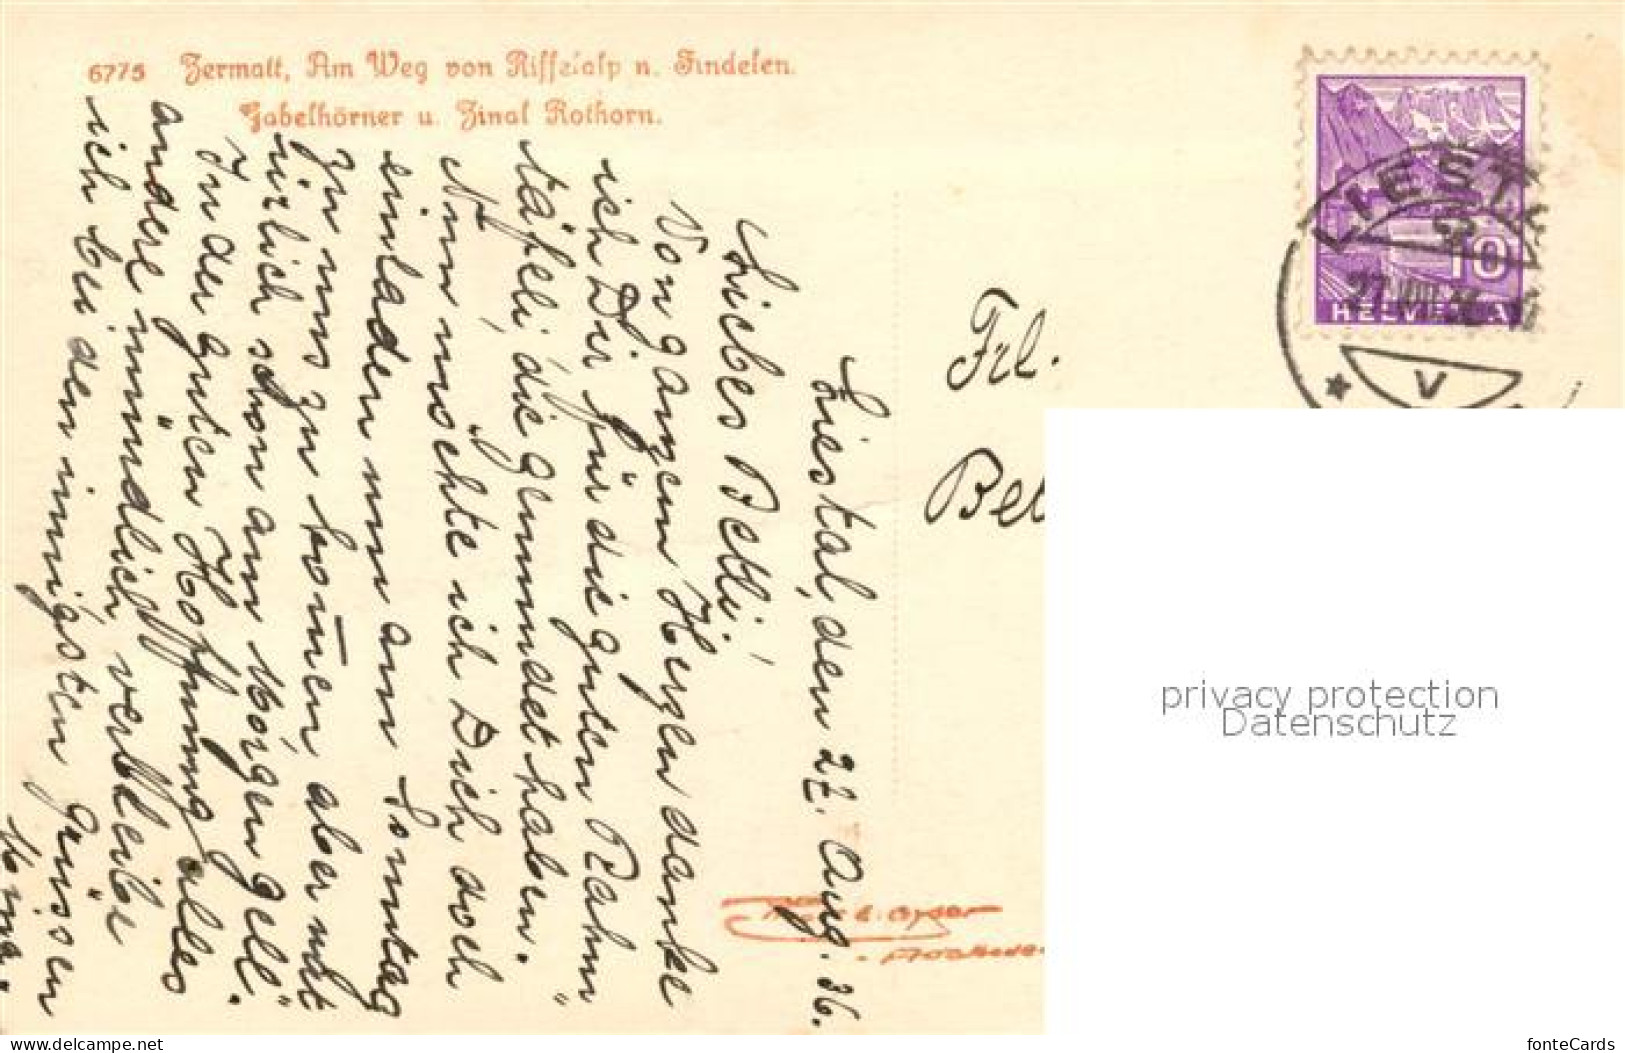 6775 Zermatt, Am Weg von Riffelalp n. Findelen.
Gabelhörner u. Zinal Rothorn.
Liestal, den 22. Aug. 36.
Liebes Betli!
Von ganzem Herzen danke
ich Dir für die guten Rahm-
täfeli, die gemundet haben.
Nun, möchte ich Dich doch
einladen nun am Sonntag
zu uns zu kommen, aber nat-
ürlich schon am Morgen gell.
In der guten Hoffnung alles
andere mündlich, verbleibe
ich bei den innigsten Grüssen
Frl.
Bet
LIESTAL
V
10
HELVETIA
privacy protection
Datenschutz
delcampe.net
fonteCards